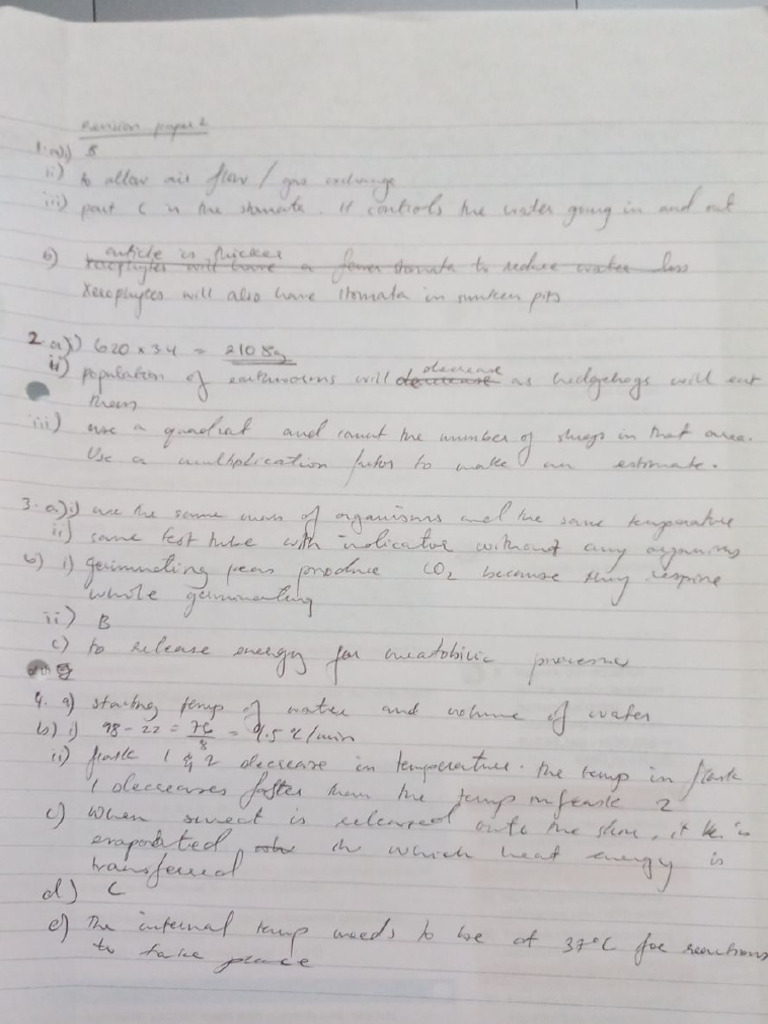 Revision paper 2
1. a)i) 8
ii) to allow air flow / gas exchange
iii) part C is the stomata. It controls the water going in and out
cuticle is thicker
b) xerophytes will have a fewer stomata to reduce water loss
Xerophytes will also have stomata in sunken pits
2. a)i) 620 x 34 = 2108g
decrease
ii) population of earthworms will as hedgehogs will eat
them
iii) use a quadrat and count the number of slugs in that area.
Use a multiplication factor to make an estimate.
3. a)i) use the same mass of organisms and the same temperature
ii) same test tube with indicator without any organisms
b) i) germinating peas produce CO2 because they respire
while germinating
ii) B
c) to release energy for meatobilic processes
4. a) starting temp of water and volume of water
b) i) 98 - 22 = 76/8 = 9.5 °C/min
ii) flask 1 & 2 decrease in temperature. the temp in flask
1 decreases faster than the temp in flask 2
c) When sweat is released onto the skin, it is
evaporated in which heat energy is
transferred
d) C
e) The internal temp needs to be at 37°C for reactions
to take place